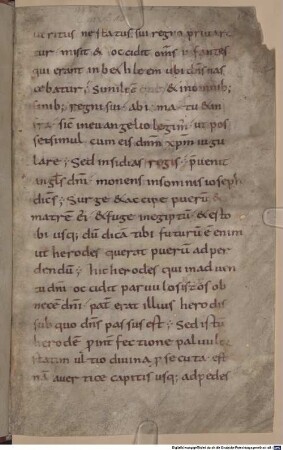 ueritus ne status sui regno priuare
tur misit & occidit om̄s infantes
qui erant in bethleem ubi dn̄s uas
cebatur; Similit & in omnib;
finib; regni sui abima tu &in
fra sic in euangelio legim̄ ut pos
set simul cum eis dn̄m xp̄m iugu
lare; Sed insidias regis p̄uenit
angl̄s dn̄i monens in somnis ioseph
dicēs; Surge & accipe puerū &
matrē ei & fuge in egiptū & esto
ibi usq; dū dicā tibi futurū ē enim
ut herodes querat puerū ad per
dendū; hic herodes qui in aduen
tu dn̄i occidit paruulos
ob necē dn̄i pat erat illius herodis
sub quo dn̄s passus est; Sed istū
herodē p̄ int̄fectione paruulor̄
statim ultio diuina p̄secuta est
nā a uertice capitis usq; ad pedes